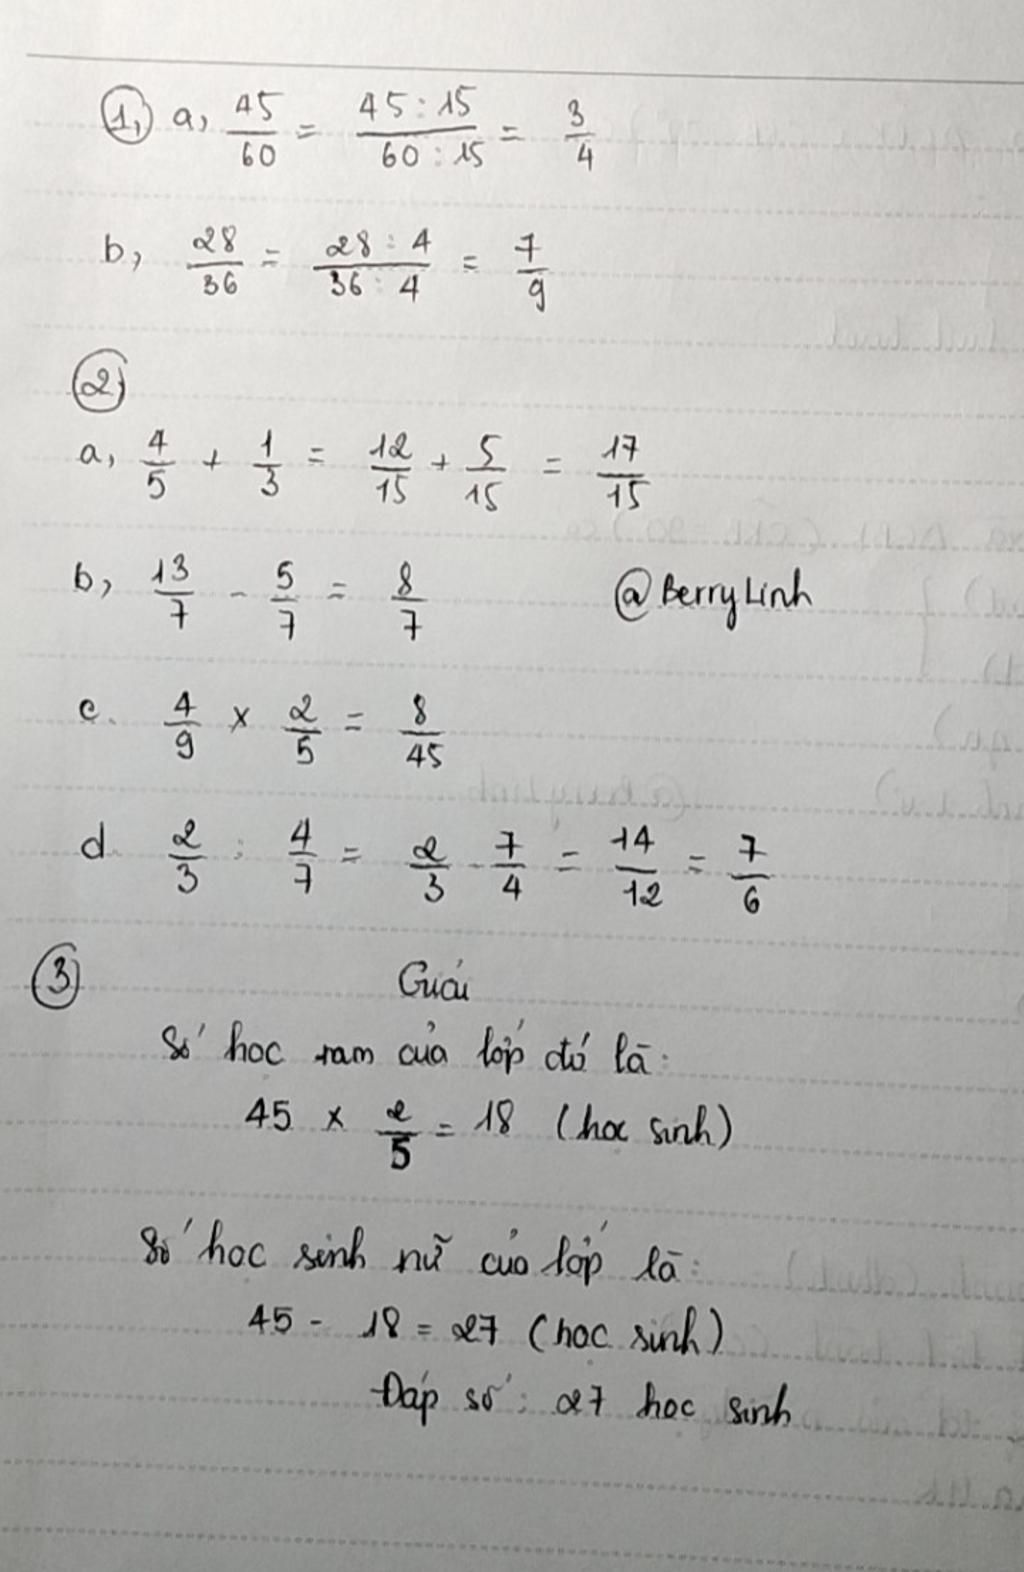 1, a, 45/60 = 45 : 15/60 : 15 = 3/4
b, 28/36 = 28 : 4/36 : 4 = 7/9
2)
a, 4/5 + 1/3 = 12/15 + 5/15 = 17/15
b, 13/7 - 5/7 = 8/7 @BerryLinh
c. 4/9 x 2/5 = 8/45
d. 2/3 : 4/7 = 2/3 . 7/4 = 14/12 = 7/6
3) Giải
Số học nam của lớp đó là:
45 x 2/5 = 18 (học sinh)
Số học sinh nữ của lớp là:
45 - 18 = 27 (học sinh)
Đáp số: 27 học sinh